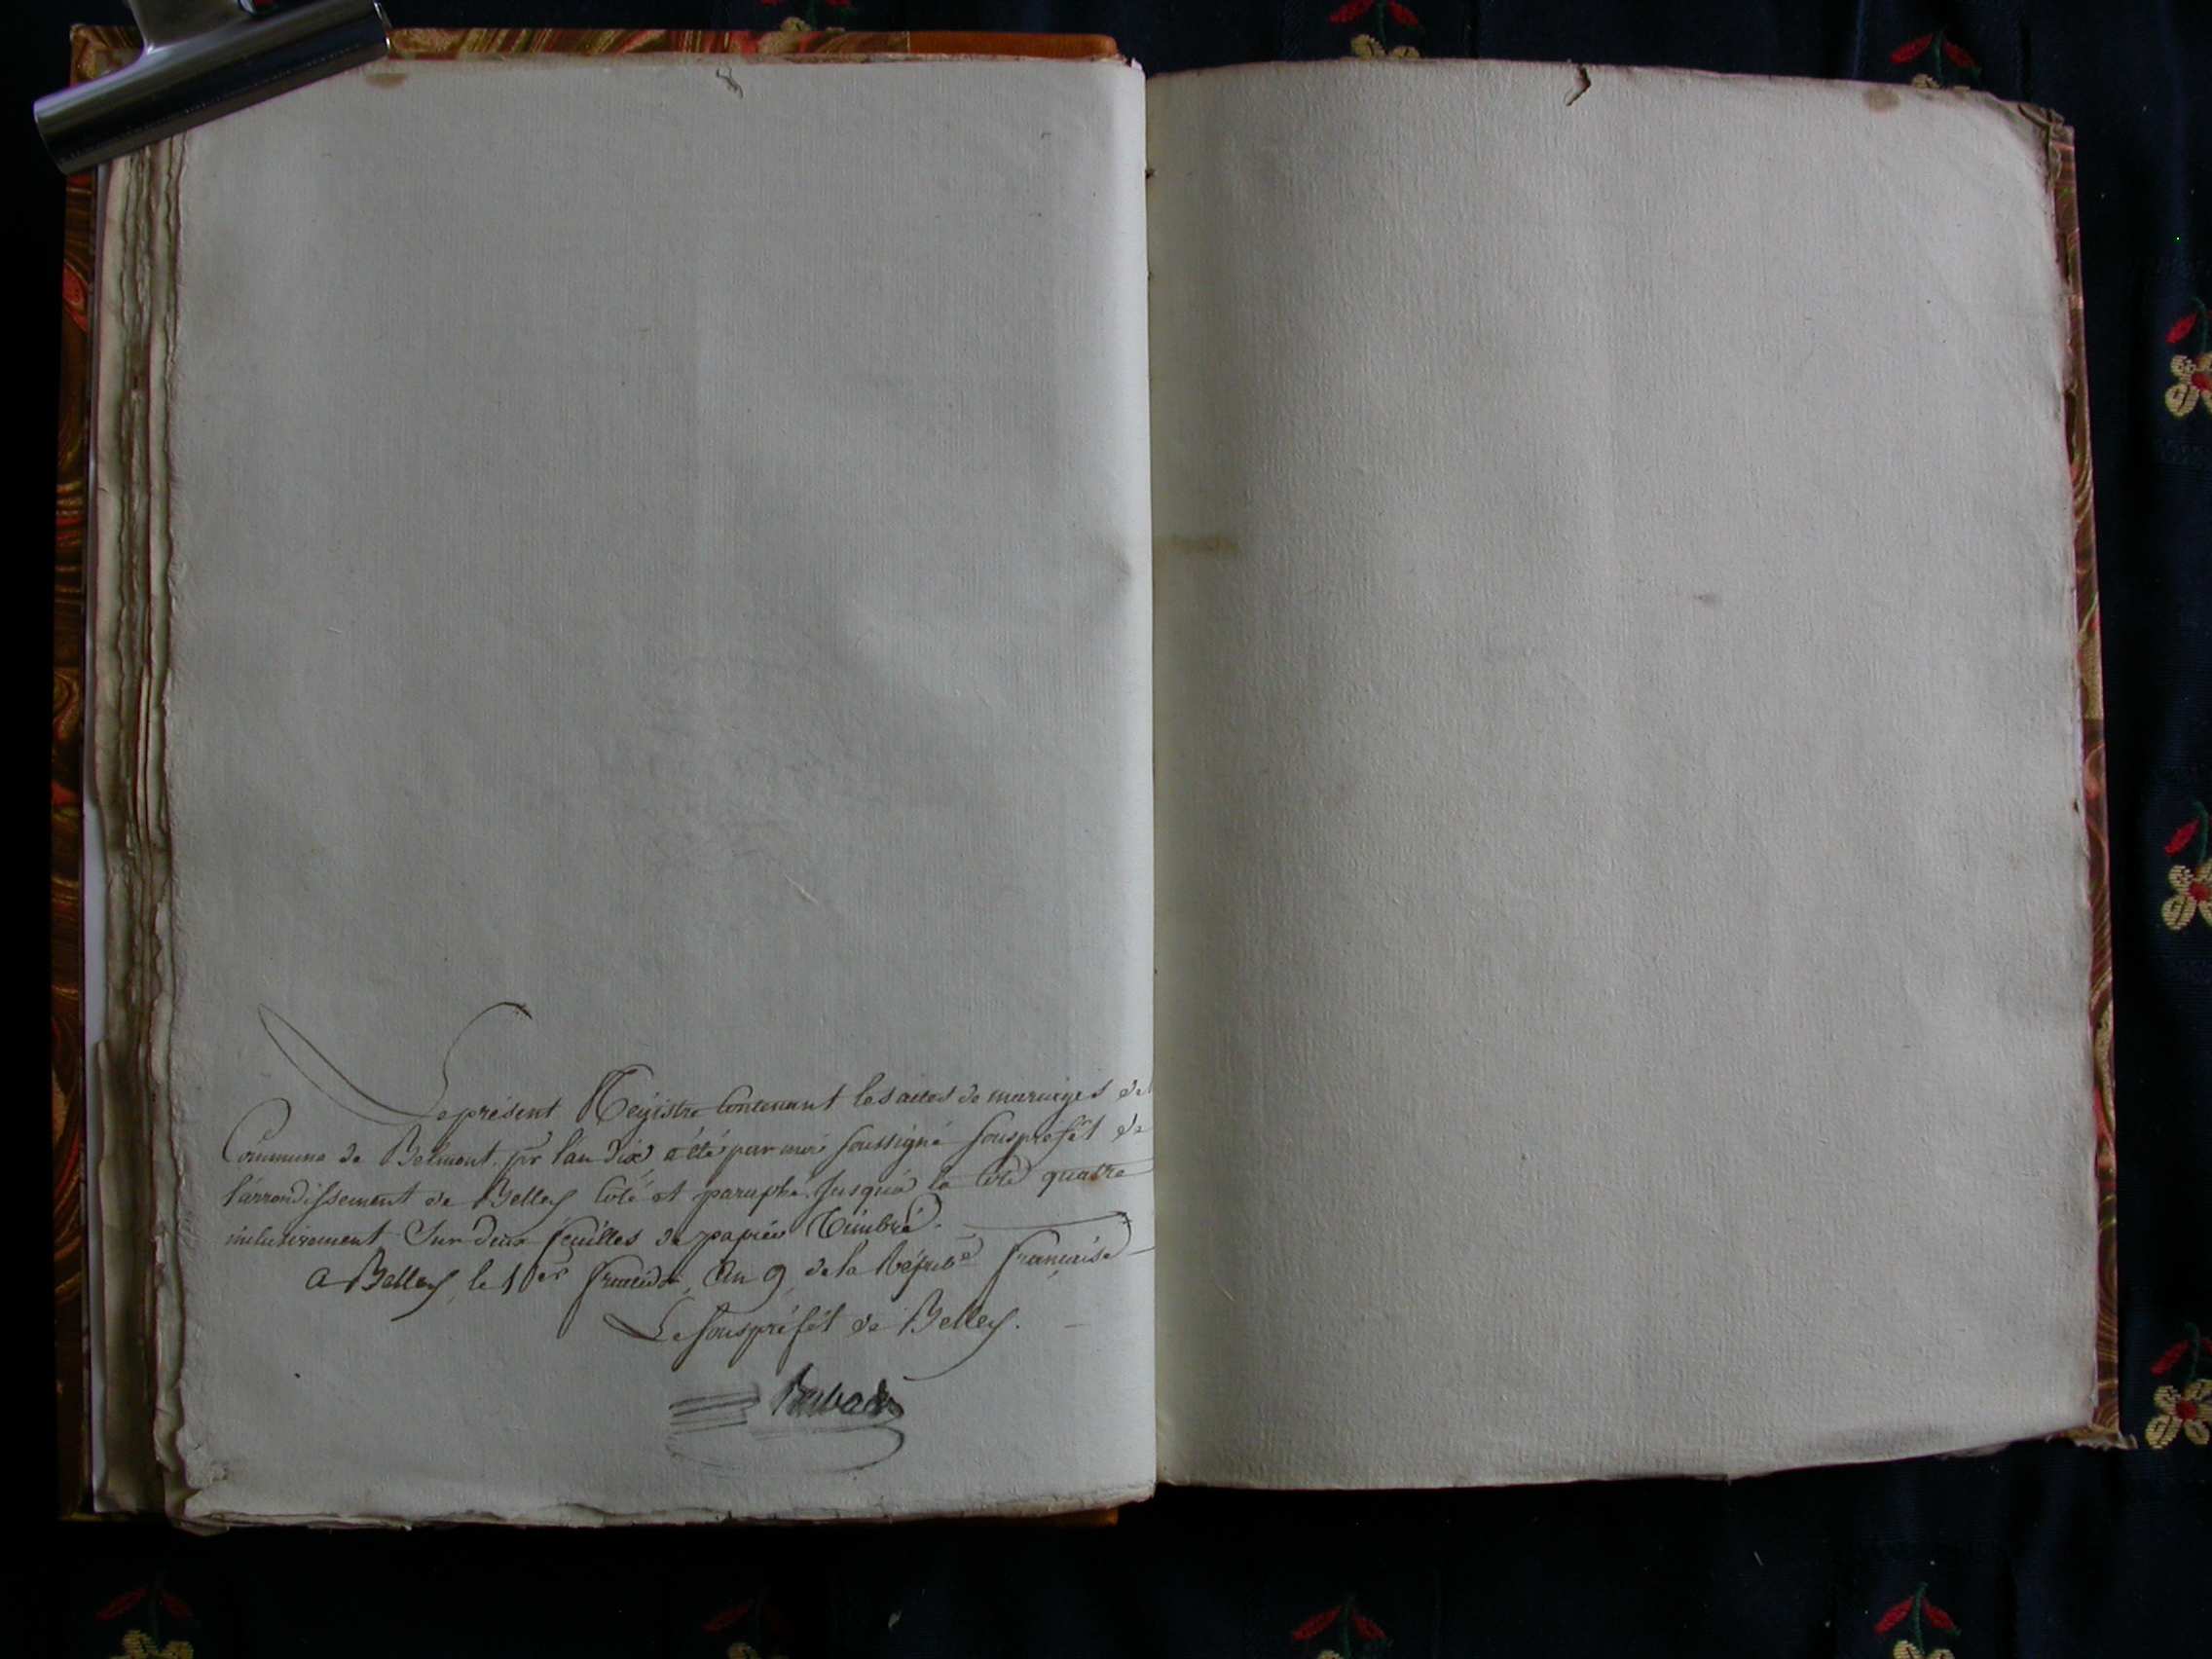 Le présent Registre contenant les actes de mariages de
Commune de Belmont pr l'an dix a été par moi soussigné souspréfêt de
l'arrondissement de Belley coté et paraphé jusqu'à la cote quatre
inclusivement sur deux feuilles de papier timbré.
a Belley, le 1er fructidor, an 9, de la Répube française
Le souspréfêt de Belley.